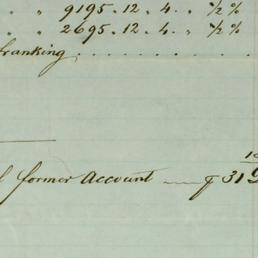 " " 9195.12.4. " ½ %
" " 2695.12.4. " ½ %
franking . . . . . . . . . .
former Account — £ 319